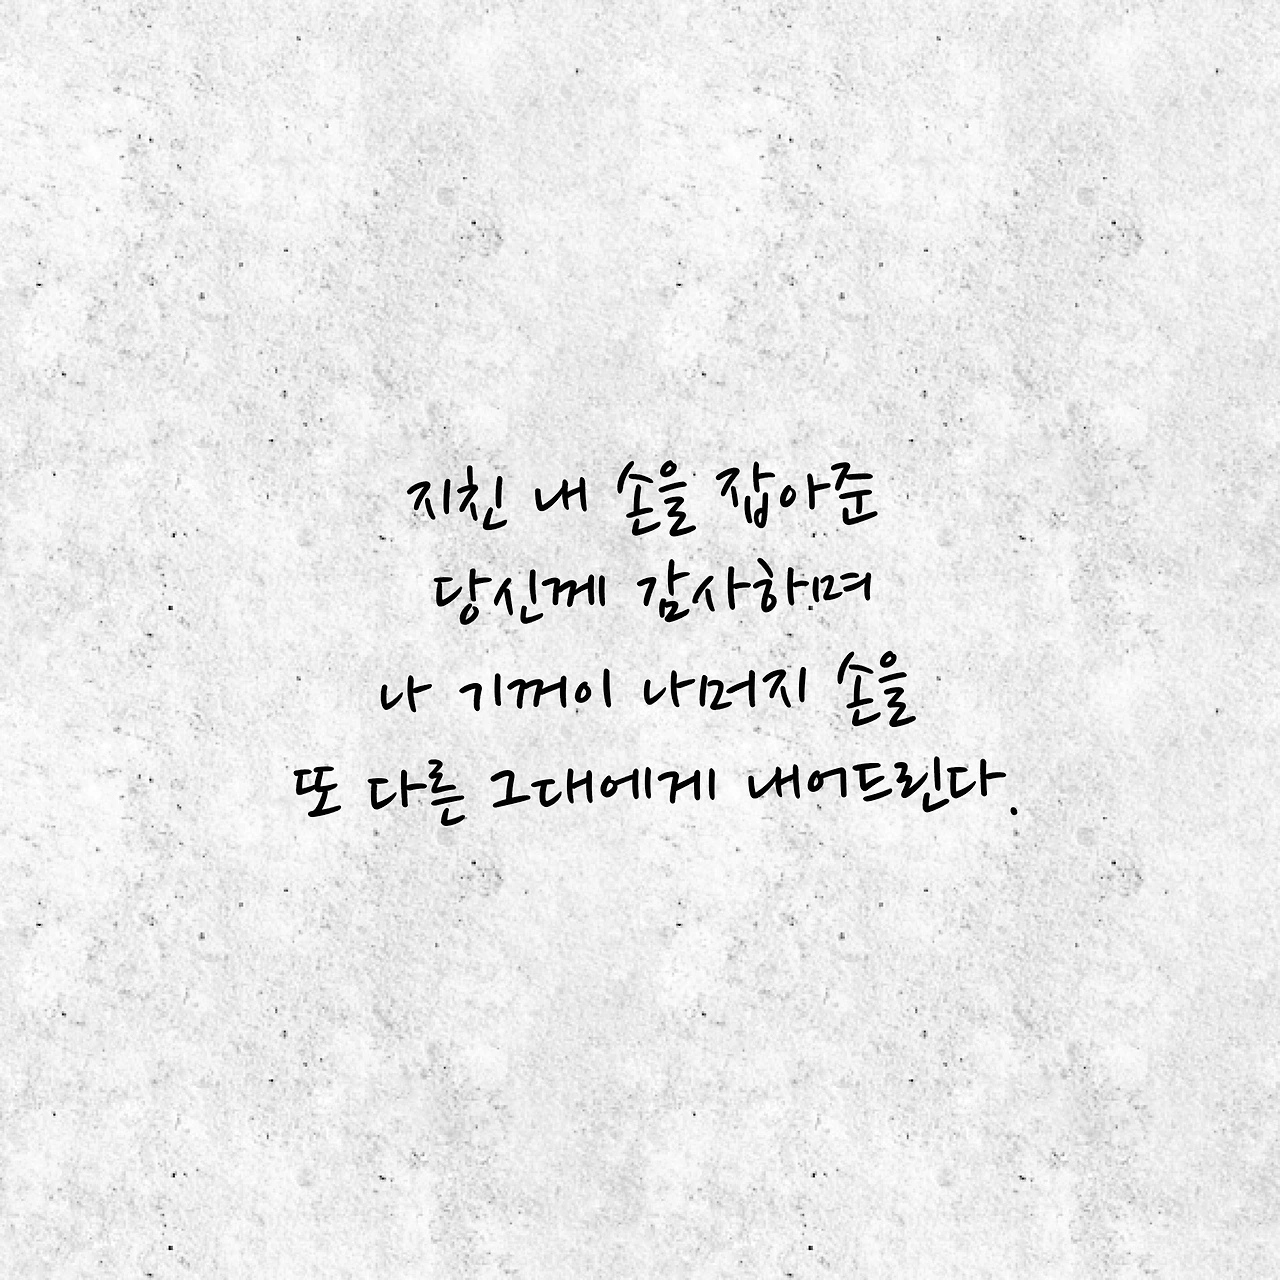 지친 내 손을 잡아준
당신께 감사하며
나 기꺼이 나머지 손을
또 다른 그대에게 내어드린다.